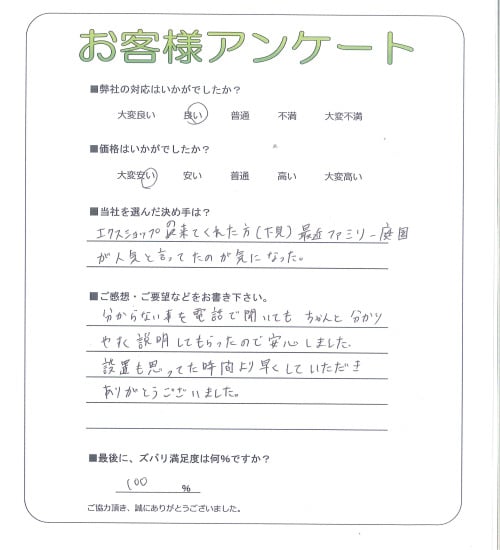 お客様アンケート
■弊社の対応はいかがでしたか？
大変良い 良い 普通 不満 大変不満
■価格はいかがでしたか？
大変安い 安い 普通 高い 大変高い
■当社を選んだ決め手は？
エクスショップの 来てくれた方(下見)最近ファミリー庭園
が人気と言ってたのが気になった。
■ご感想・ご要望などをお書き下さい。
分からない事を電話で聞いても ちゃんと 分かり
やすく説明してもらったので安心しました。
設置も思ってた時間より早くしていただき
ありがとうございました。
■最後に、ズバリ満足度は何%ですか？
100 %
ご協力頂き、誠にありがとうございました。